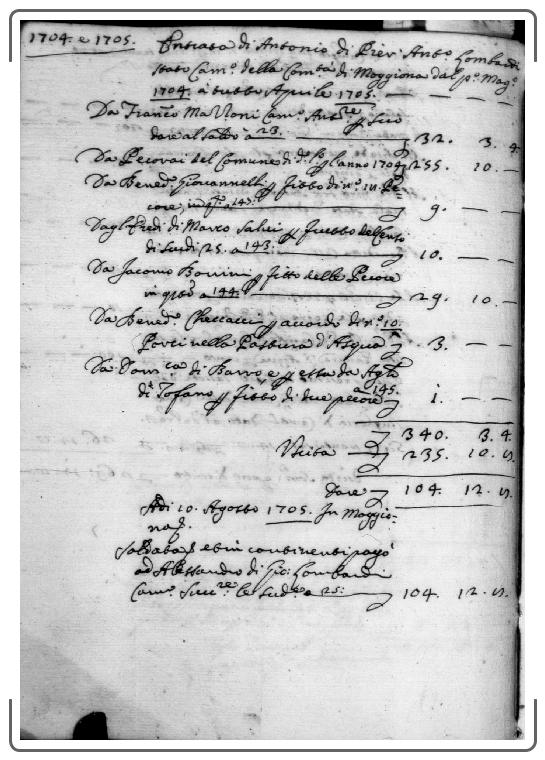 1704. e 1705. Entrata di Antonio di Pier Ant.º Lombardi
stato Cam.º della Com.tà di Moggiona dal p.º Mag.º
1704. a tutto Aprile 1705. — — —
Da Franc.º Ma Cam.º Ant.re
dare al saldo a 23. 32. 3. 4.
Da Pecorai del Comune di d.º l'anno 1704 255. 10. —
Da Bened.º Giovannelli p fitto di n.º Pe-
core in q.º a 143. 9. — —
Dagl'Eredi di Marco Salvi p
di Scudi 25. a 143. 10. — —
Da Jacomo Bonini p fitto delle Pecore
in q.sto a 144. 29. 10. —
Da Bened.º Checcacci p accordo di n.º 10.
Porci nella Pastura d'Acqua 3. — —
Da Dom.ca di Barro e p essa da Ag.º
a 145.
di Tofano p fitto di due pecore 1. — —
340. 3. 4.
Uscita 235. 10. 5.
Dare 104. 12. 5.
Adi 10. Agosto 1705. In Moggio-
na
Saldata et in continenti pagò
ad Alessandro di Gio: Lombardi
Cam.º Succ.re le sud.e a 25: 104. 12. 5.